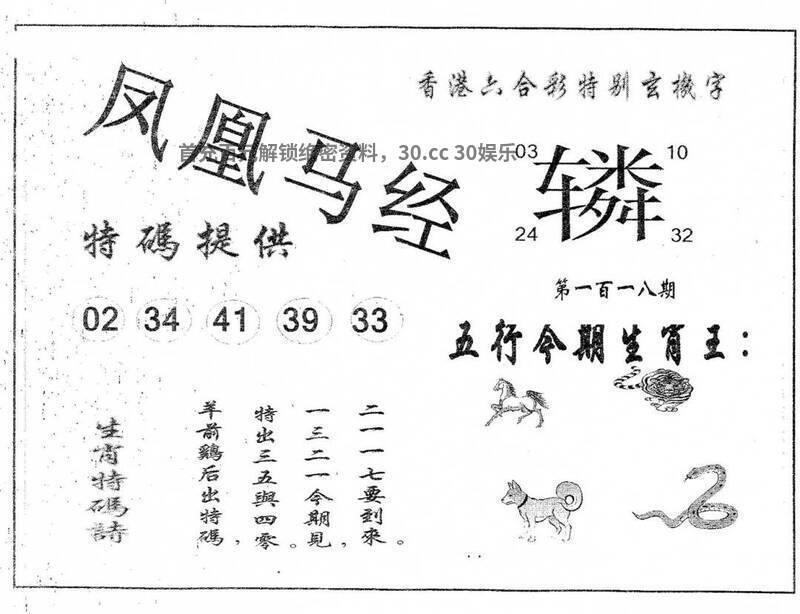 香港六合彩特别玄機字
凤凰马经
首充百元解锁绝密资料，30.cc 30娱乐
03 10
辚
24 32
特碼提供
第一百一八期
02 34 41 39 33
五行今期生肖王：
生肖特碼詩
羊前鷄后出特碼，
特出三五與四零。
一三二一今期見，
二一一七要到來。